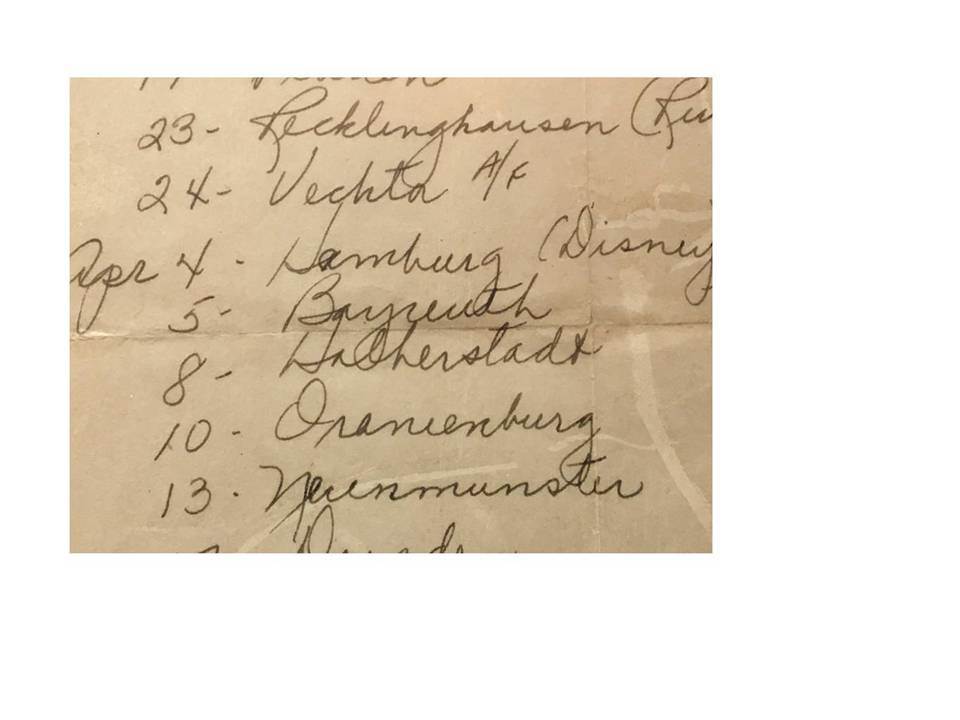 23- Recklinghausen (Ru
24- Vechta A/F
Apr 4 - Hamburg (Disney
5- Bayreuth
8- Halberstadt
10 - Oranienburg
13 - Neuenmunster